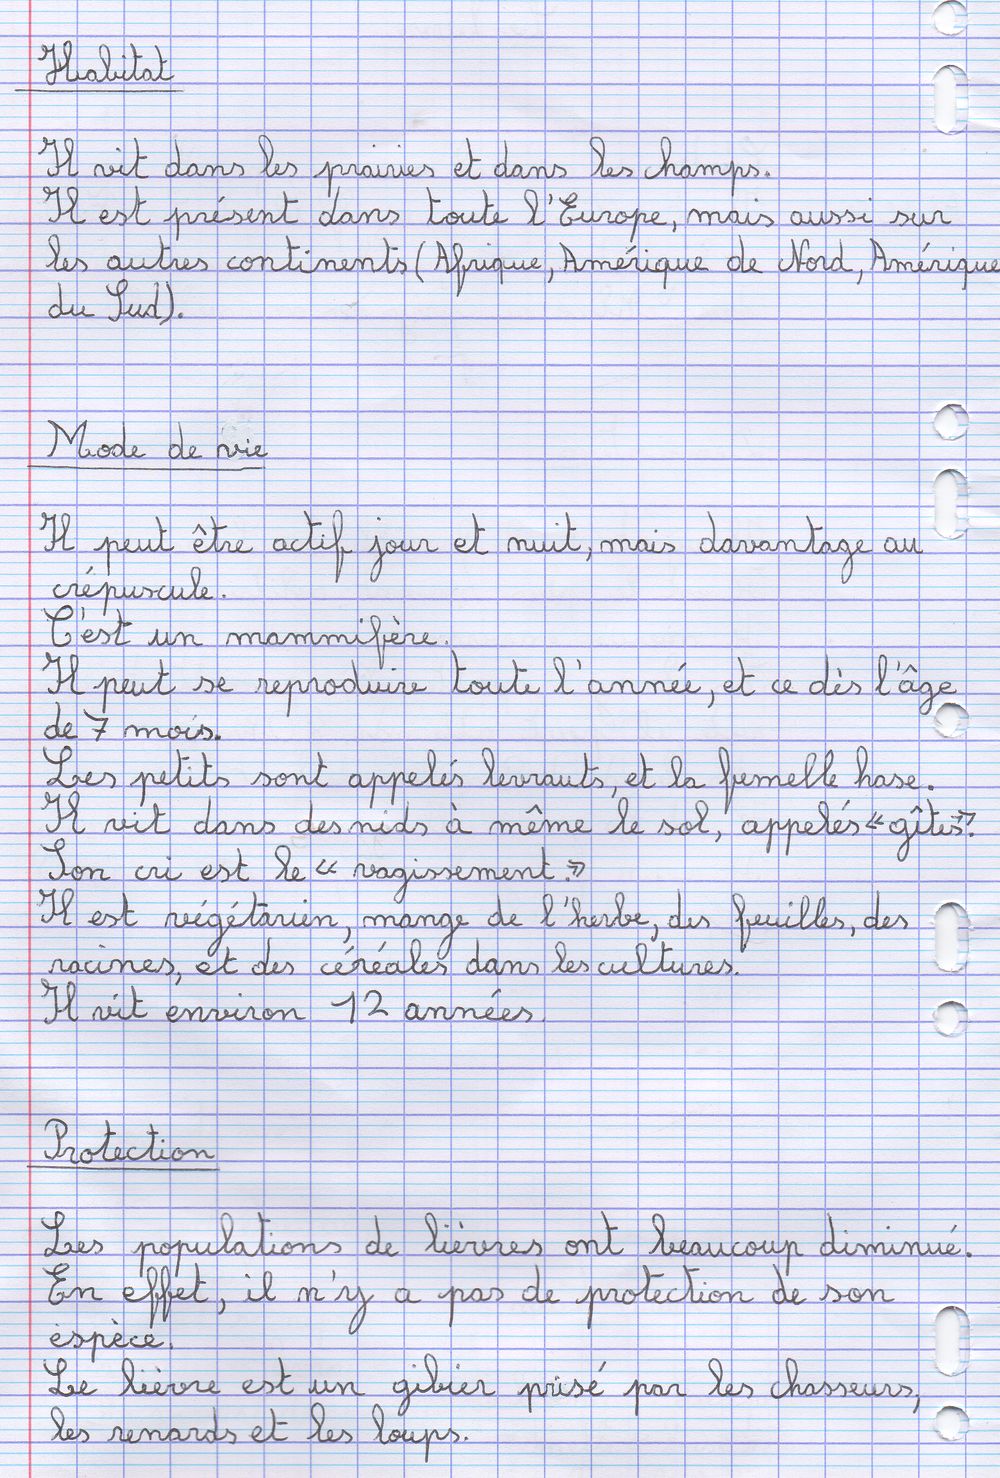 Habitat
Il vit dans les prairies et dans les champs.
Il est présent dans toute l'Europe, mais aussi sur
les autres continents (Afrique, Amérique de Nord, Amérique
du Sud).
Mode de vie
Il peut être actif jour et nuit, mais davantage au
crépuscule.
C'est un mammifère.
Il peut se reproduire toute l'année, et ce dès l'âge
de 7 mois.
Les petits sont appelés levrauts, et la femelle hase.
Il vit dans des nids à même le sol, appelés « gîtes ».
Son cri est le « vagissement ».
Il est végétarien, mange de l'herbe, des feuilles, des
racines, et des céréales dans les cultures.
Il vit environ 12 années.
Protection
Les populations de lièvres ont beaucoup diminué.
En effet, il n'y a pas de protection de son
espèce.
Le lièvre est un gibier prisé par les chasseurs,
les renards et les loups.